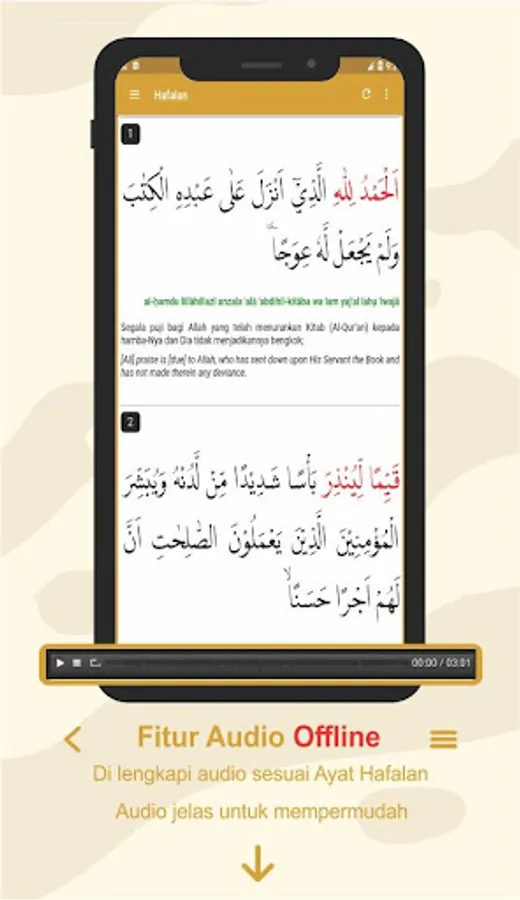 Hafalan
1
اَلْحَمْدُ لِلّٰهِ الَّذِيْٓ اَنْزَلَ عَلٰى عَبْدِهِ الْكِتٰبَ
وَلَمْ يَجْعَلْ لَّهٗ عِوَجًاۜ
al-ḥamdu lillāhillażī anzala 'alā 'abdihil-kitāba wa lam yaj'al lahụ 'iwajā
Segala puji bagi Allah yang telah menurunkan Kitab (Al-Qur'an) kepada
hamba-Nya dan Dia tidak menjadikannya bengkok;
[All] praise is [due] to Allah, who has sent down upon His Servant the Book and
has not made therein any deviance.
2
قَيِّمًا لِّيُنْذِرَ بَأْسًا شَدِيْدًا مِّنْ لَّدُنْهُ وَيُبَشِّرَ
الْمُؤْمِنِيْنَ الَّذِيْنَ يَعْمَلُوْنَ الصّٰلِحٰتِ اَنَّ
لَهُمْ اَجْرًا حَسَنًاۙ
00:00 / 03:01
Fitur Audio Offline
Di lengkapi audio sesuai Ayat Hafalan
Audio jelas untuk mempermudah